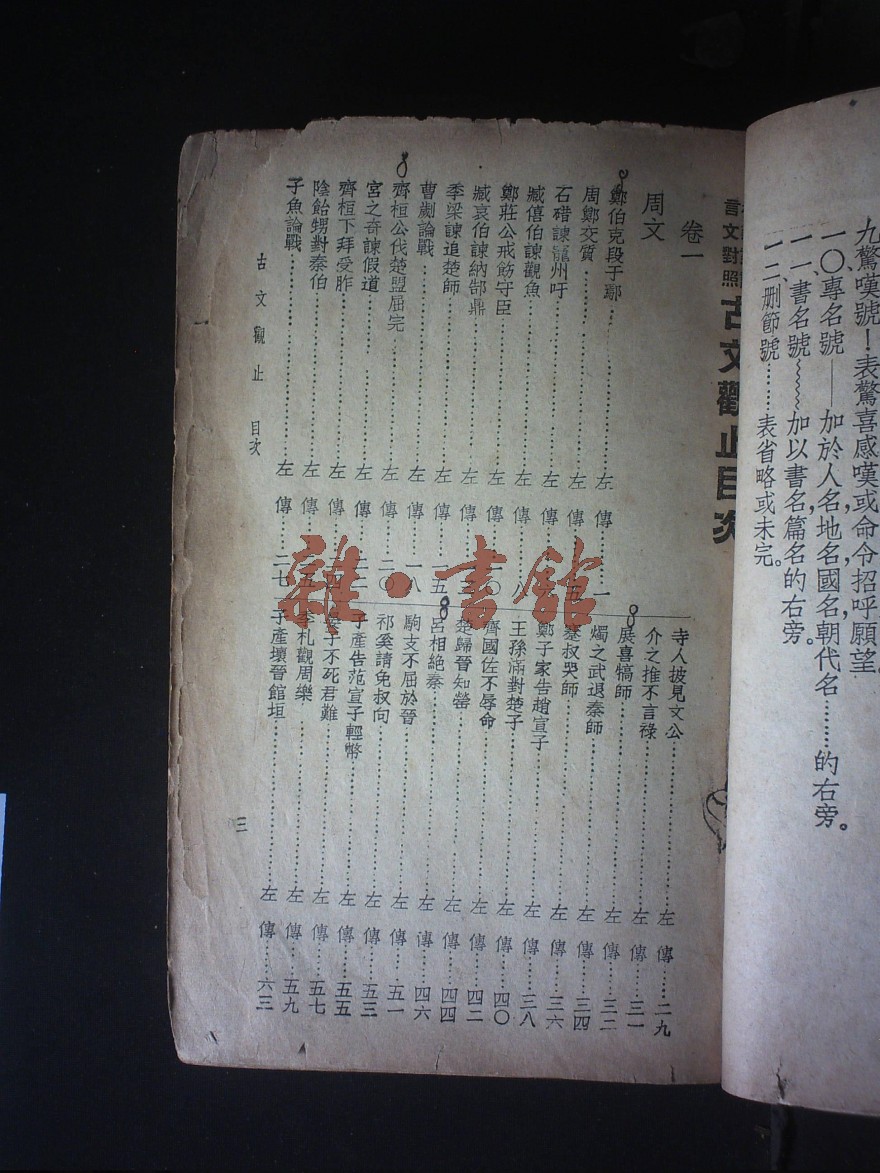 九、驚嘆號！表驚喜感嘆或命令招呼願望。
一〇、專名號——加於人名地名國名朝代名……的右旁。
一一、書名號﹏﹏﹏加以書名篇名的右旁。
一二、刪節號……表省略或未完。
言文對照
古文觀止目次
卷一
周文
鄭伯克段于鄢……左傳……一
周鄭交質……左傳……
石碏諫寵州吁……左傳……
臧僖伯諫觀魚……左傳……八
鄭莊公戒飭守臣……左傳……一〇
臧哀伯諫納郜鼎……左傳……
季梁諫追楚師……左傳……一五
曹劌論戰……左傳……一八
齊桓公伐楚盟屈完……左傳……二〇
宮之奇諫假道……左傳……二二
齊桓下拜受胙……左傳……二四
陰飴甥對秦伯……左傳……二五
子魚論戰……左傳……二七
寺人披見文公……左傳……二九
介之推不言祿……左傳……三一
展喜犒師……左傳……三二
燭之武退秦師……左傳……三四
蹇叔哭師……左傳……三六
鄭子家告趙宣子……左傳……三八
王孫滿對楚子……左傳……四〇
齊國佐不辱命……左傳……四二
楚歸晉知罃……左傳……四四
呂相絕秦……左傳……四六
駒支不屈於晉……左傳……五一
祁奚請免叔向……左傳……五三
子產告范宣子輕幣……左傳……五五
晏子不死君難……左傳……五七
季札觀周樂……左傳……五九
子產壞晉館垣……左傳……六三
古文觀止　目次
三
雜·書館